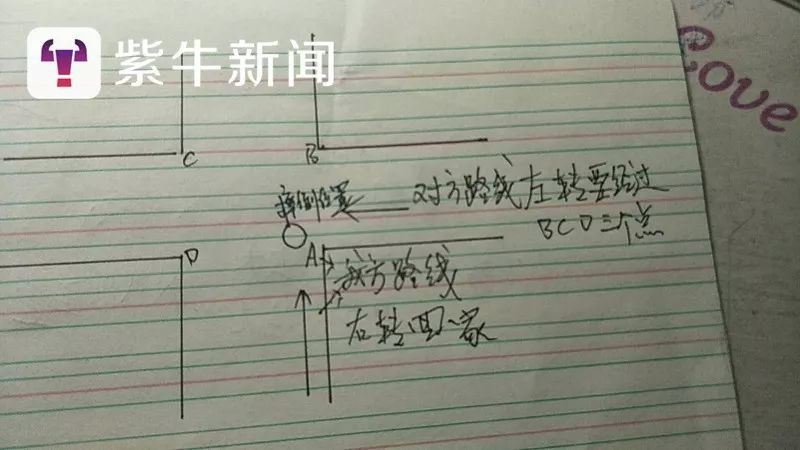 紫牛新闻
Love
C
B
摔倒位置 对方路线左转要经过
BCD三个点
A
D
我方路线
右转回家